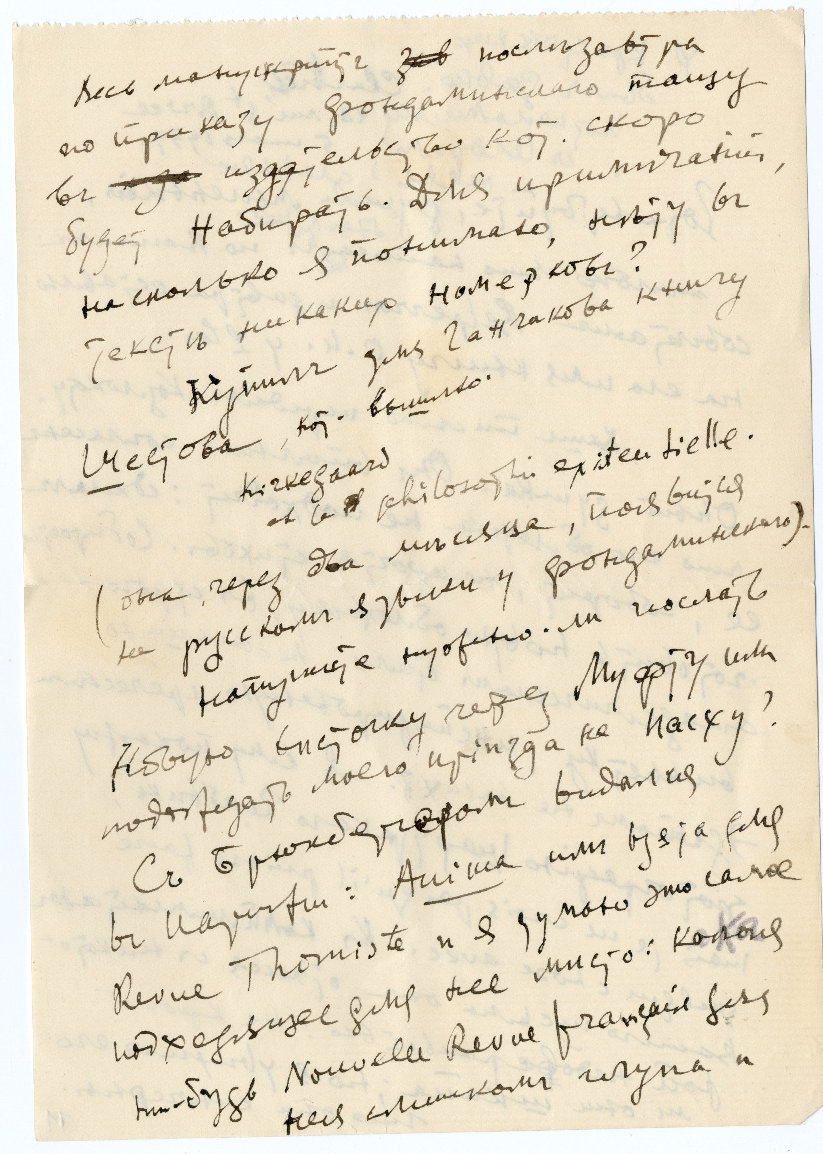 Весь манускриптъ зав послѣзавтра
по приказу Фондаминскаго тащу
въ издательство кот. скоро
будетъ набирать. Для примѣчаній,
насколько я понимаю, нѣту въ
текстѣ никакихъ номерковъ?
Купилъ для Ганчакова книгу
Шестова, кот. вышла.
Kirkegaard
et la philosophie existentielle.
(она, черезъ два мѣсяца, появится
на русскомъ языкѣ у Фондаминскаго).
Напишите нужно-ли послать
новую через Муфту или
подождать моего пріѣзда на Пасху?
Съ Брюкбергеромъ видался
въ Anima имъ взята для
Revue Thomiste и я думаю это самое
подходящее для нее мѣсто: какая
нибудь Nouvelle Revue française для
нея слишкомъ глупа и